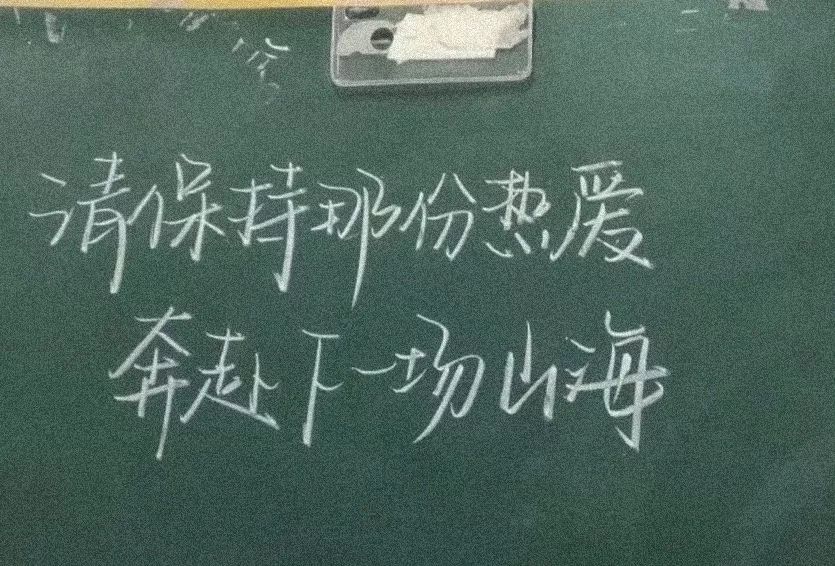 请保持那份热爱
奔赴下一场山海